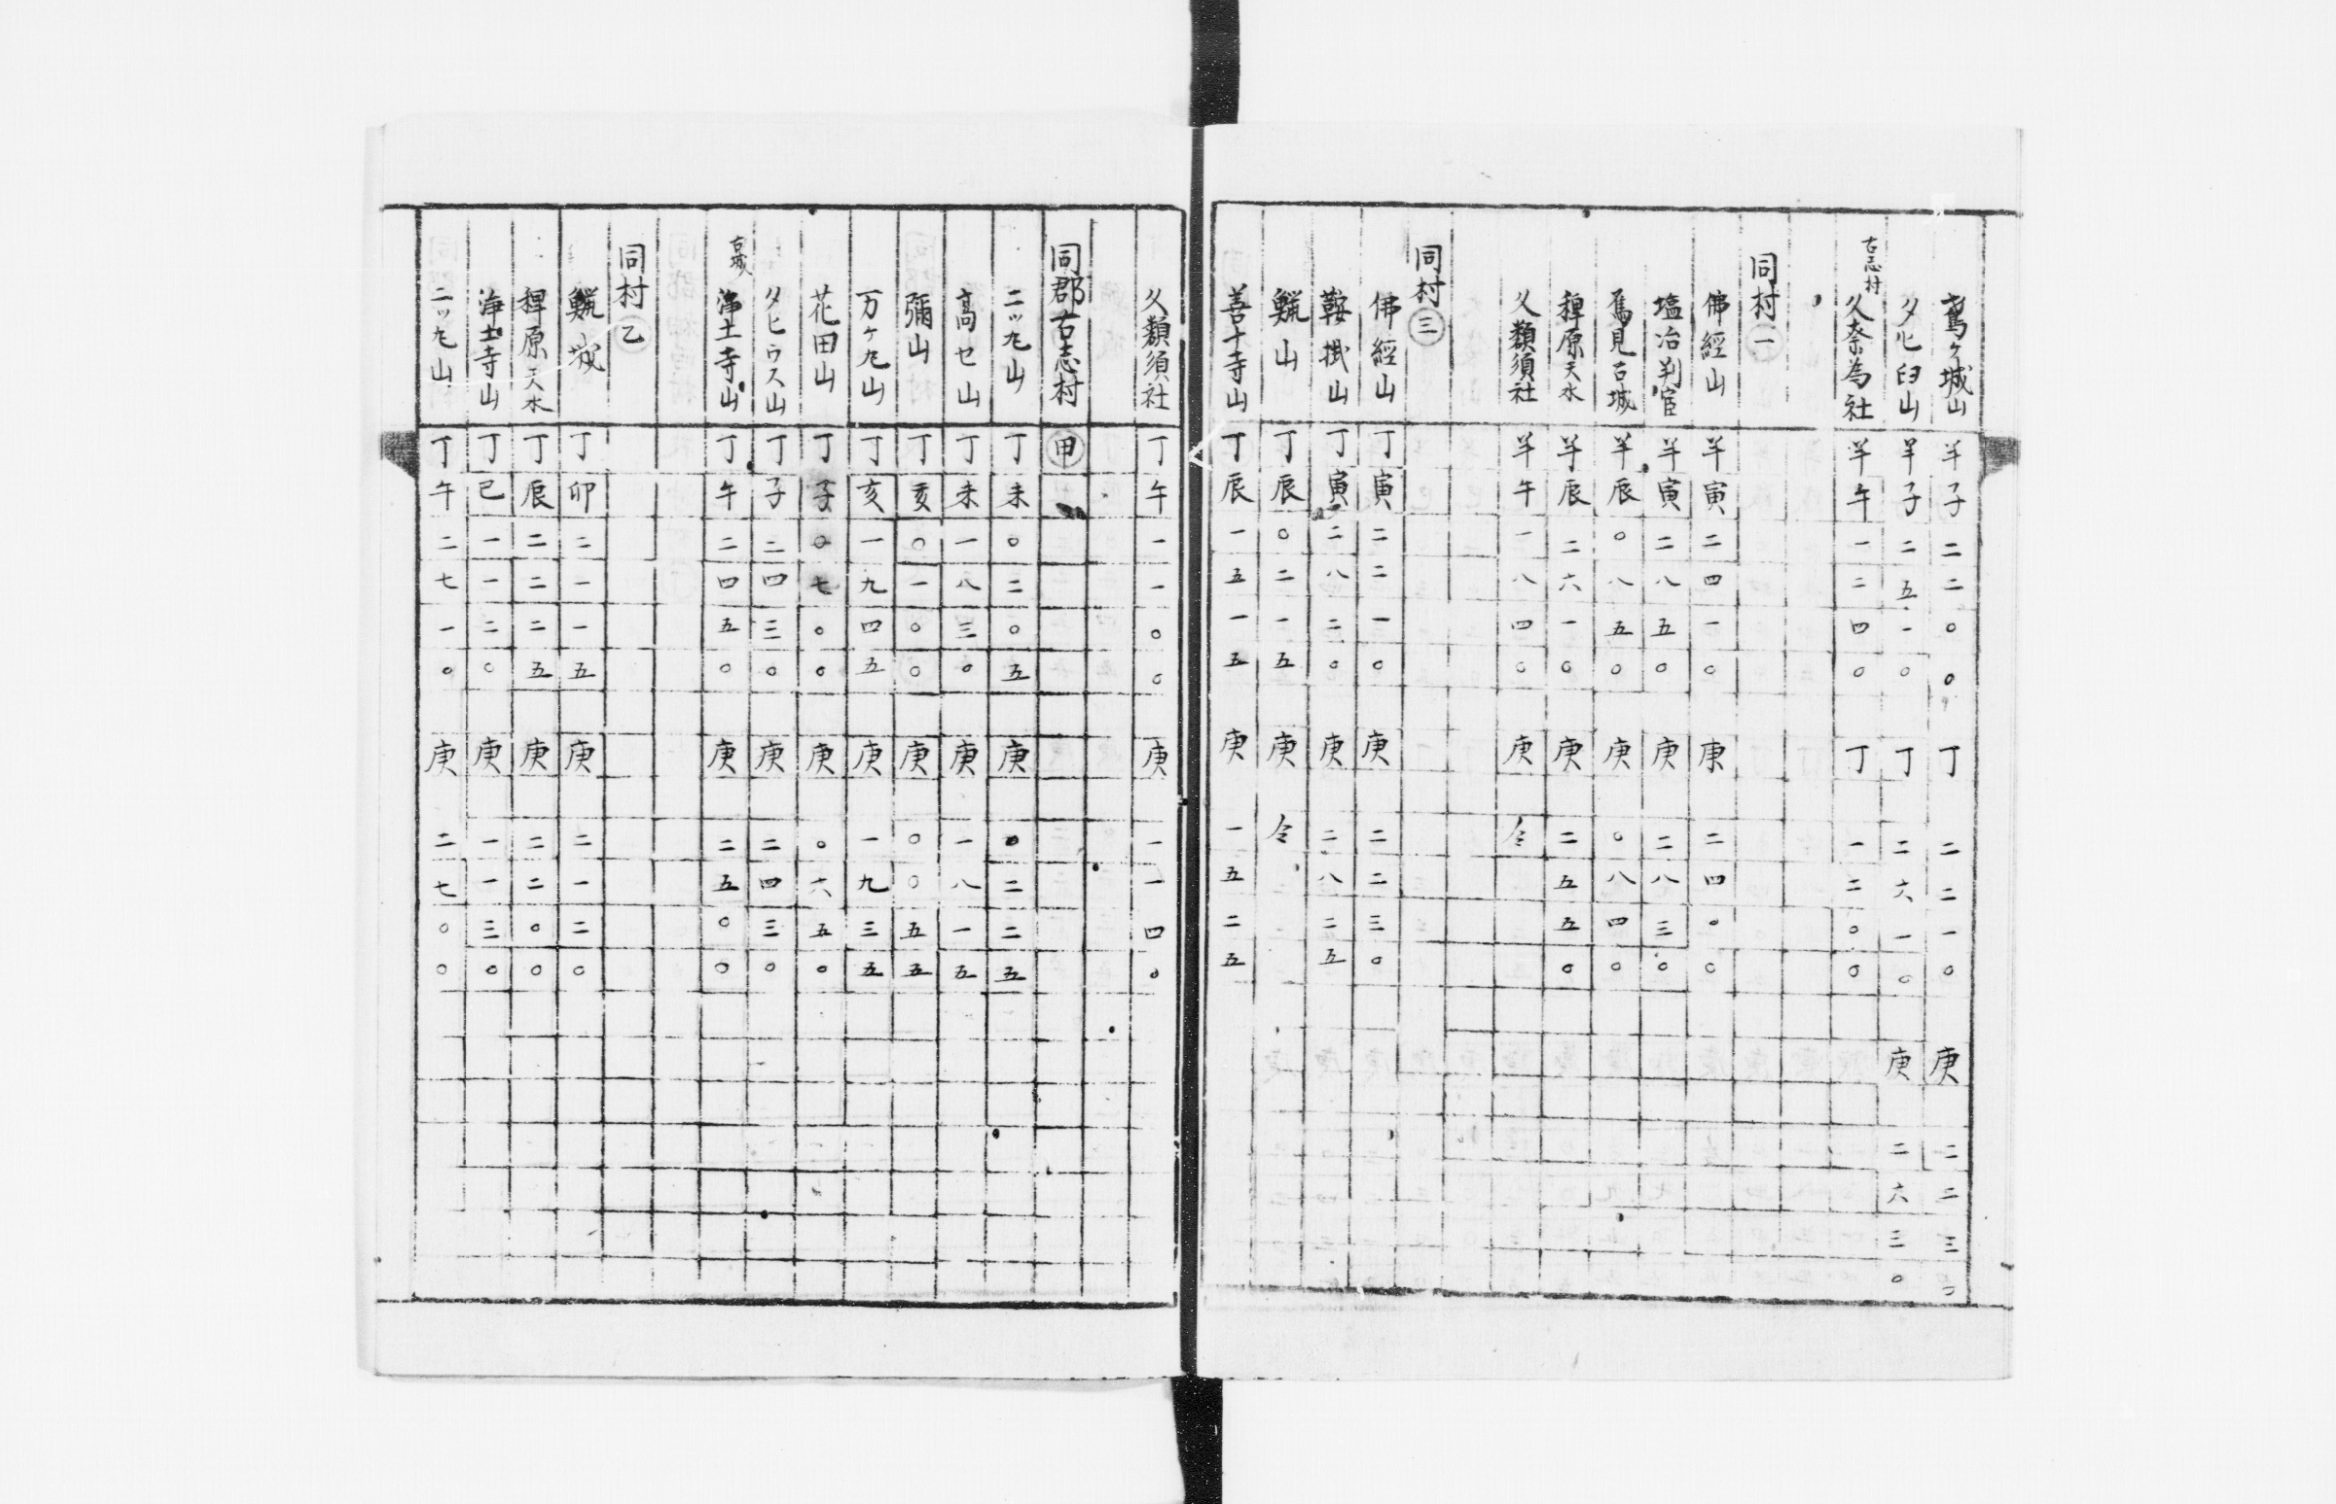 鳶ヶ城山 羊子二二〇〇 丁 二二一〇 庚 二二三〇
夕ヒ臼山 羊子二五一〇 丁 二六一〇 庚 二六三〇
古志村 久奈為社 羊午一二四〇 丁 一二〇〇
同村 一
佛經山 羊寅二四一〇 庚 二四〇〇
塩冶判官 羊寅二八五〇 庚 二八三〇
鳶見古城 羊辰〇八五〇 庚 〇八四〇
稗原天水 羊辰二六一〇 庚 二五五〇
久類須社 羊午一八四〇 庚 仝
同村 三
佛經山 丁寅二二一〇 庚 二二三〇
鞍掛山 丁寅二八二〇 庚 二八二五
山 丁辰〇二一五 庚 仝
善十寺山 丁辰一五一五 庚 一五二五
久類須社 丁午一一〇〇 庚 一一四〇
同郡古志村 甲
二ッ丸山 丁未〇二〇五 庚 〇二二五
高セ山 丁未一八三〇 庚 一八一五
彌山 丁亥〇一〇〇 庚 〇〇五五
万ヶ丸山 丁亥一九四五 庚 一九三五
花田山 丁子〇七〇〇 庚 〇六五〇
タヒウス山 丁子二四三〇 庚 二四三〇
古城 浄土寺山 丁午二四五〇 庚 二五〇〇
同村 乙
城 丁卯二一一五 庚 二一二〇
稗原天水 丁辰二二二五 庚 二二〇〇
浄土寺山 丁巳一一二〇 庚 一一三〇
二ッ丸山 丁午二七一〇 庚 二七〇〇